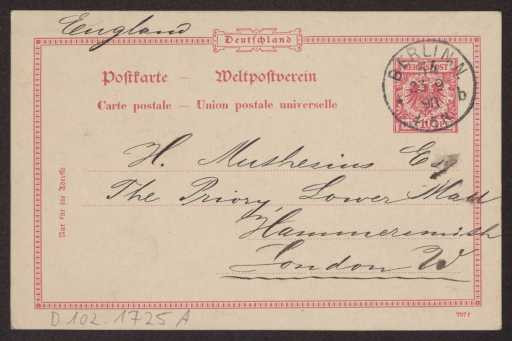 England
Deutschland
Postkarte — Weltpostverein
Carte postale — Union postale universelle
BERLIN N
b
H. Muthesius Esq
The Priory, Lower Mall
Hammersmith
London W
Nur für die Adresse
D 102-1725 A